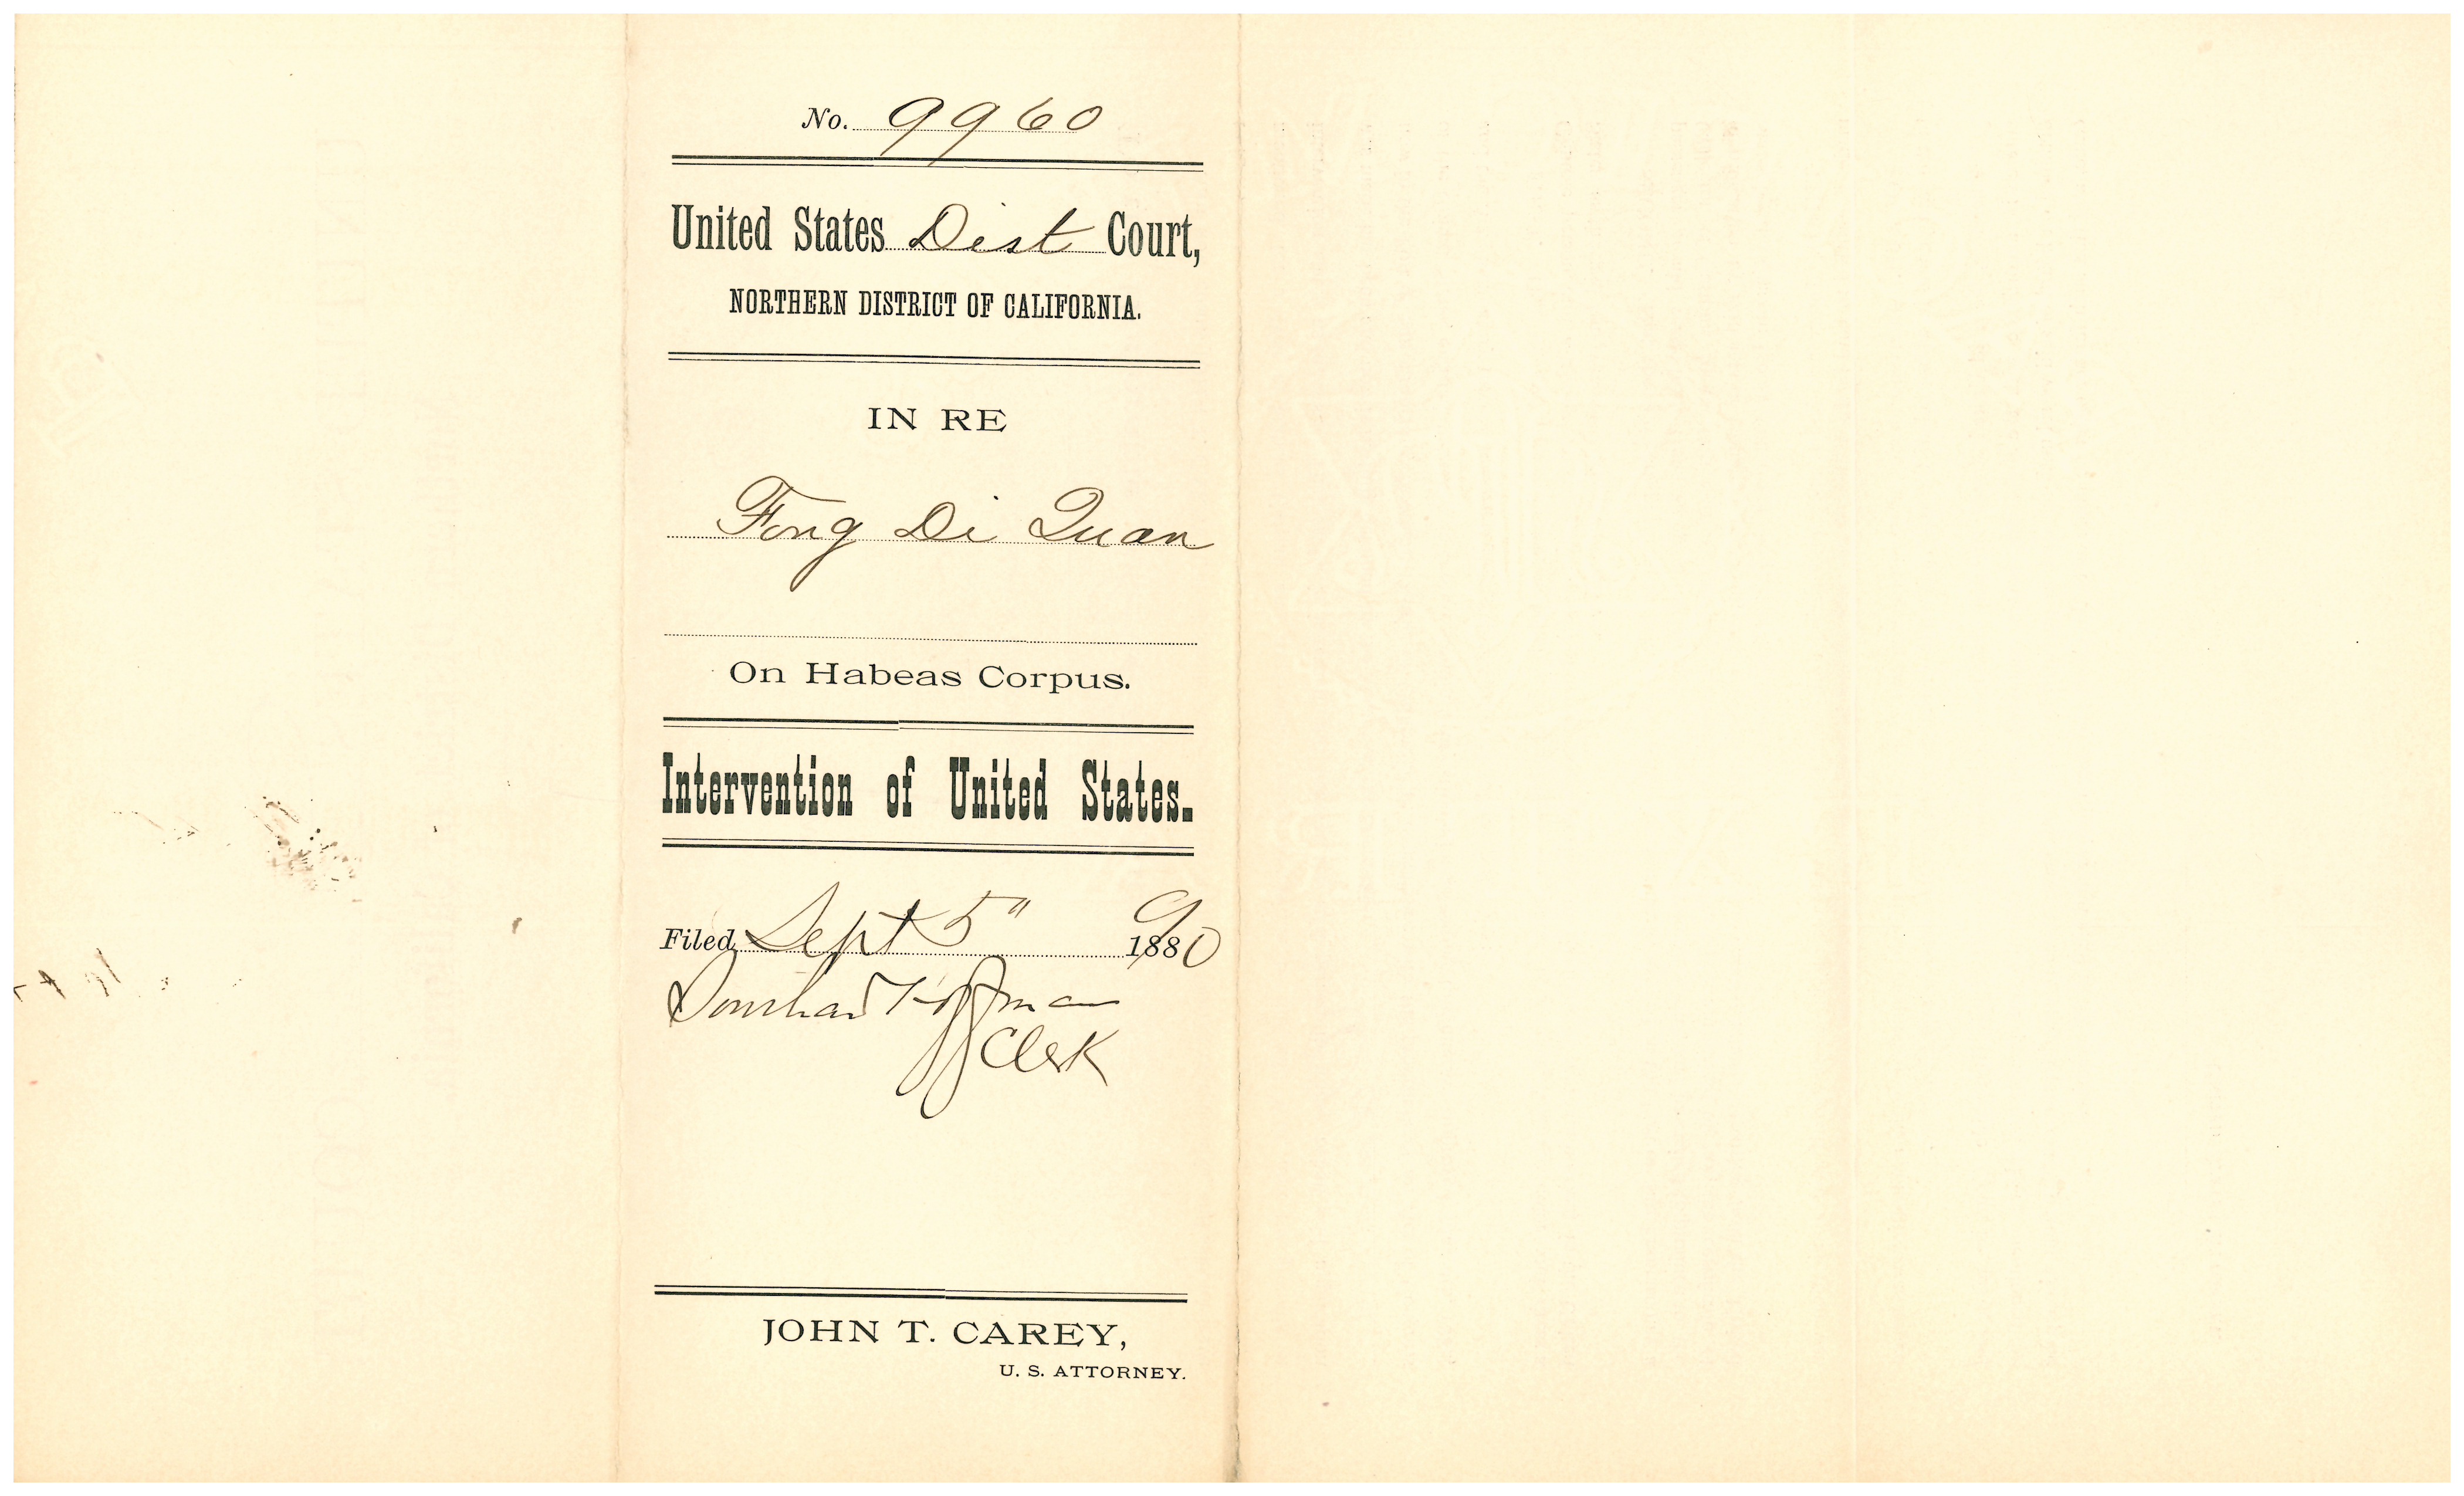 No. 9960
United States Dist Court,
NORTHERN DISTRICT OF CALIFORNIA.
IN RE
Fong Di Quan
On Habeas Corpus.
Intervention of United States.
Filed, Sept 5" 1890
Hoffman
Clerk
JOHN T. CAREY,
U. S. ATTORNEY.